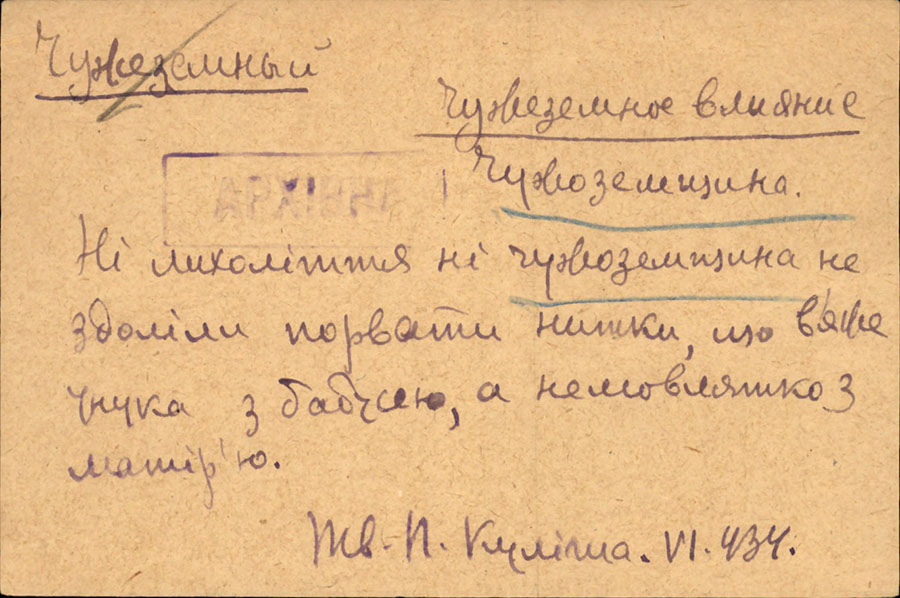 Чужеземный
Чужеземное влияние
АРХІВНІ
Чужоземщина.
Ні лихоліття ні чужоземщина не
здоліли порвати нитки, що вʼяже
унука з бабусею, а немовлятко з
матірʼю.
Тв. П. Куліша. VI. 434.